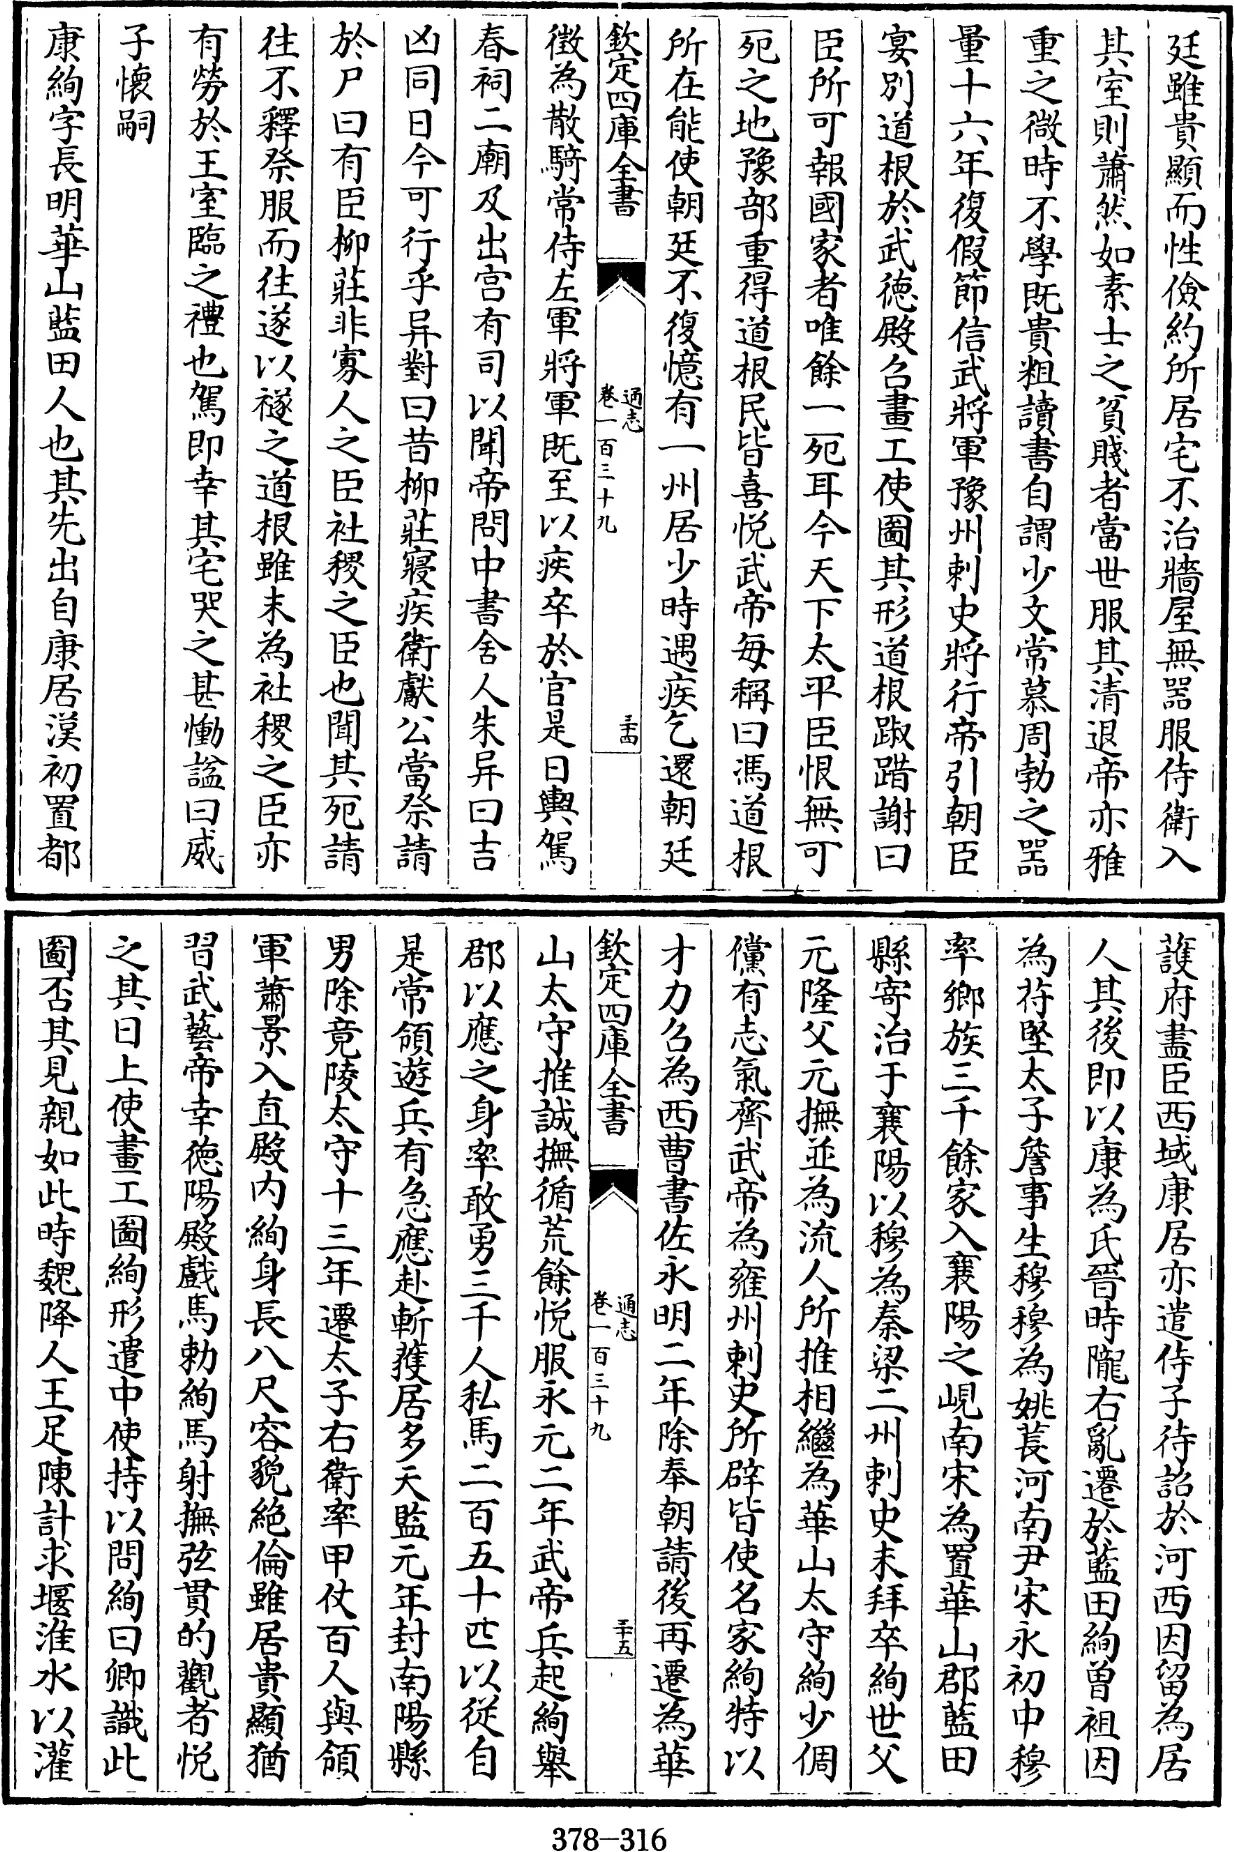 廷雖貴顯而性儉約所居宅不治牆屋無器服侍衛入
其室則蕭然如素士之貧賤者當世服其清退帝亦雅
重之微時不學既貴粗讀書自謂少文常慕周勃之器
量十六年復假節信武將軍豫州刺史將行帝引朝臣
宴別道根於武德殿召畫工使圖其形道根踧踖謝曰
臣所可報國家者唯餘一死耳今天下太平臣恨無可
死之地豫部重得道根民皆喜悅武帝每稱曰馮道根
所在能使朝廷不復憶有一州居少時遇疾乞還朝廷
欽定四庫全書
通志
卷一百三十九
三十四
徵為散騎常侍左軍將軍既至以疾卒於官是日輿駕
春祠二廟及出宮有司以聞帝問中書舍人朱异曰吉
凶同日今可行乎异對曰昔柳莊寢疾衛獻公當祭請
於尸曰有臣柳莊非寡人之臣社稷之臣也聞其死請
往不釋祭服而往遂以襚之道根雖未為社稷之臣亦
有勞於王室臨之禮也駕即幸其宅哭之甚慟諡曰威
子懷嗣
康絢字長明華山藍田人也其先出自康居漢初置都
護府盡臣西域康居亦遣侍子待詔於河西因留為居
人其後即以康為氏晉時隴右亂遷於藍田絢曾祖因
為苻堅太子詹事生穆穆為姚萇河南尹宋永初中穆
率鄉族三千餘家入襄陽之峴南宋為置華山郡藍田
縣寄治于襄陽以穆為秦梁二州刺史未拜卒絢世父
元隆父元撫並為流人所推相繼為華山太守絢少倜
儻有志氣齊武帝為雍州刺史所辟皆使名家絢特以
才力召為西曹書佐永明二年除奉朝請後再遷為華
欽定四庫全書
通志
卷一百三十九
三十五
山太守推誠撫循荒餘悅服永元二年武帝兵起絢舉
郡以應之身率敢勇三千人私馬二百五十匹以從自
是常領遊兵有急應赴斬獲居多天監元年封南陽縣
男除竟陵太守十三年遷太子右衛率甲仗百人與領
軍蕭景入直殿內絢身長八尺容貌絕倫雖居貴顯猶
習武藝帝幸德陽殿戲馬勅絢馬射撫弦貫的觀者悅
之其日上使畫工圖絢形遣中使持以問絢曰卿識此
圖否其見親如此時魏降人王足陳計求堰淮水以灌
378-316